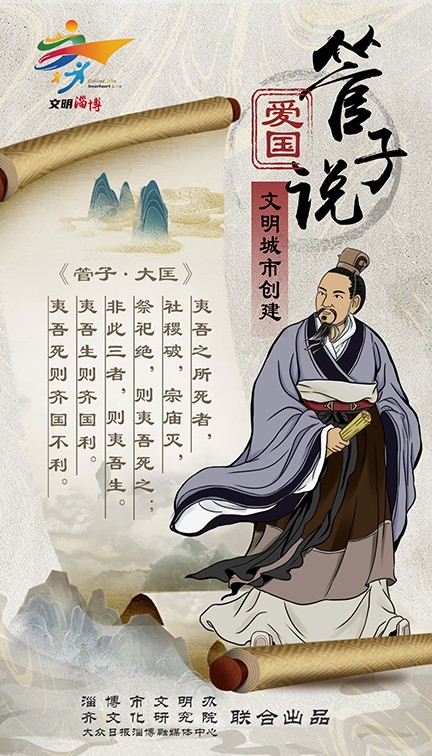 文明淄博
管子说
爱国
文明城市创建
《管子·大匡》
夷吾之所死者，
社稷破，宗庙灭，
祭祀绝，则夷吾死之；
非此三者，则夷吾生。
夷吾生则齐国利。
夷吾死则齐国不利。
淄博市文明办
齐文化研究院
大众日报淄博融媒体中心
联合出品